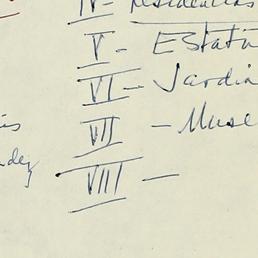 IV - Residencias
V - Estatu
VI - Jardin
VII - Muse
VIII -